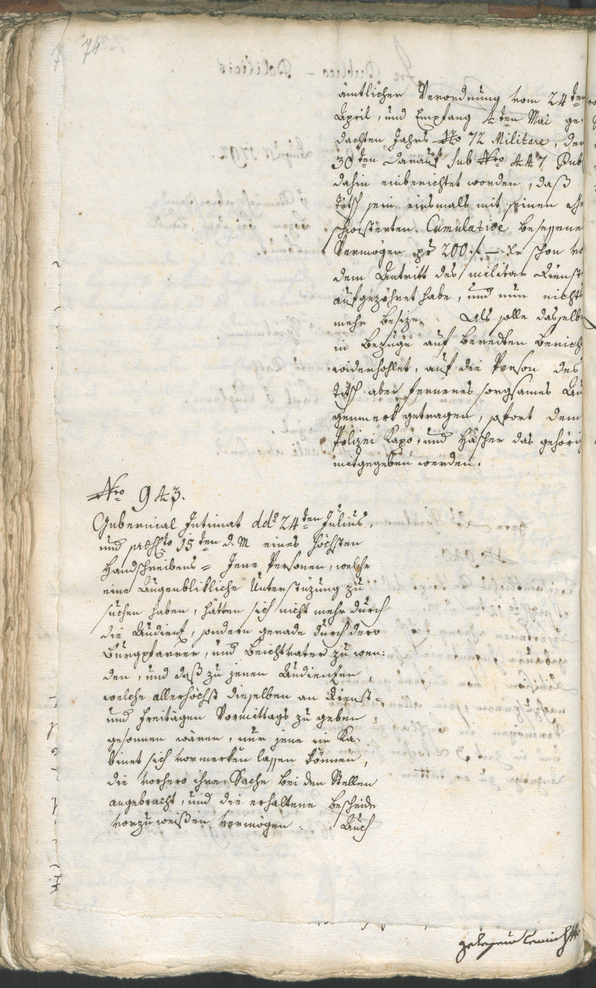 74
ämtlicher Verordnung vom 24ten
April, und Empfang 4ten Mai ge
dachten Jahrs No 72 Militare, den
30ten darauf sub Nro 447 Pub
dahin einberichtet worden, daß
sein einsmals mit seinen
Cumulative besessene
Vermögen pr 200 f — Xr schon vo
dem Antritt des militar Dienst
aufgezöhret habe, und nun nicht
mehr besize. Als solle dasselb
in Bezuge auf beredten Berich
widerhohlet, auf die Person des
aber ferneres sorgsames Au
genmerk getragen, sofort dem
Polizei Kapo, und Häscher das gehörig
mitgegeben werden.
Nro 943.
Gubernial Intimat ddo 24ten Julius,
und 15ten d. M. eines höchsten
Handschreibens = Jene Personen, welche
eine Augenblikliche Unterstüzung zu
suchen haben, hätten sich nicht mehr durch
die Audienz, sondern gerade durch dero
Burgpfarrer, und Beichtvater zu wen:
den, und daß zu jenen Audienzen,
welche allerhöchst dieselben an Dienst-
und Freitägen Vormittags zu geben
gesonnen wären, nur jene im Ka-
binet sich vormerken lassen können,
die vorhero ihre Sache bei den Stellen
angebracht, und die erhaltene Bescheide
vorzuweißen vermögen. Auch